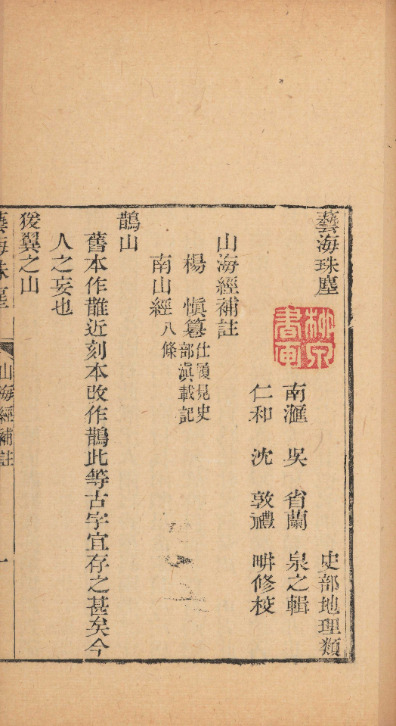 藝海珠塵　史部地理類
南滙　吳　省蘭　泉之輯
仁和　沈　敦禮　畊修校
山海經補註
楊　愼篹仕履見史部滇載記
南山經八條
鵲山
舊本作䧿近刻本改作鵲此等古字宜存之甚矣今
人之妄也
猨翼之山
藝海珠塵　山海經補註　一